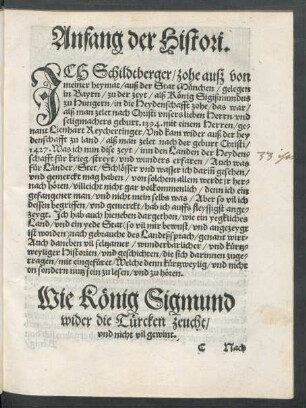 Anfang der Histori.
ICH Schildtberger/ zohe auß von
meiner heymat/ auß der Stat München/ gelegen
in Bayrn/ zu der zeyt/ als König Sigißmundus
zu Hungern/ in die Heydenschafft zohe/ das war/
als man zelet nach Christi unsers lieben Herrn und
seligmachers geburt. 1394. mit einem Herren/ ge-
nant Lienhart Reychertinger/ Und kam wider auß der hey
denschafft zu land/ als man zelet nach der geburt Christi/
1427. Was ich nun dise zeyt/ inn den Landen der Heyden-
schafft für krieg/ streyt/ und wunders erfaren/ Auch was
für Länder/ Stet/ Schlösser und wasser ich darin gesehen/
und gemerckt mag haben/ von solchem allem werdt jr her-
nach hören/ villeicht nicht gar volkommenlich/ denn ich ein
gefangener man/ und nicht mein selbs was/ Aber so vil ich
dessen begriffen/ und gemerckt/ hab ich auffs fleyssigst ange-
zeygt. Ich hab auch hieneben dargethon/ wie ein yegkliches
Land/ und ein yede Stat/ so vil mir bewust/ und angezeygt
ist worden/ nach gebrauche des Landtsprach/ genant wirt/
Auch daneben vil seltzamer/ wunderbarlicher/ und kürtz-
weyliger Historien/ und geschichten/ die sich darinnen zuge-
tragen/ mit eingefüret. Welche denn kürtzweylig/ und nicht
on sondern nutz sein zu lesen/ und zu hören.
Wie König Sigmund
wider die Türcken zeucht/
und nicht vil gewint.
C Nach